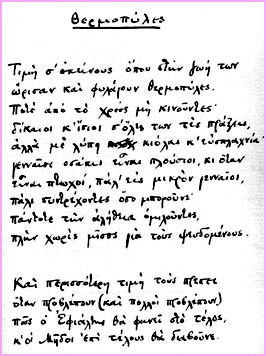 Θερμοπύλες
Τιμή σ' εκείνους όπου στην ζωή των
ώρισαν και φυλάγουν Θερμοπύλες.
Ποτέ από το χρέος μη κινούντες·
δίκαιοι κ' ίσιοι σ' όλες των τες πράξεις,
αλλά με λύπη κιόλας κ' ευσπλαχνία·
γενναίοι οσάκις είναι πλούσιοι, κι όταν
είναι πτωχοί, πάλ' εις μικρόν γενναίοι,
πάλι συντρέχοντες όσο μπορούνε·
πάντοτε την αλήθεια ομιλούντες,
πλην χωρίς μίσος για τους ψευδομένους.
Και περισσότερη τιμή τους πρέπει
όταν προβλέπουν (και πολλοί προβλέπουν)
πως ο Εφιάλτης θα φανεί στο τέλος,
κ' οι Μήδοι επί τέλους θα διαβούνε.